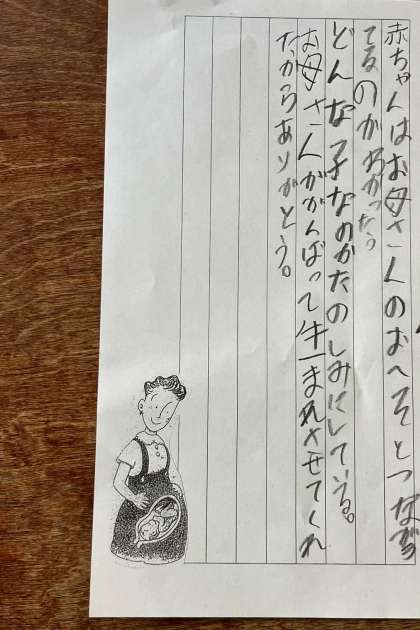 赤ちゃんはお母さんのおへそとつながっ
てるのがわかったら
どんな子なのかたのしみにしている。
お母さんががんばって生まれさせてくれ
たからありがとう。